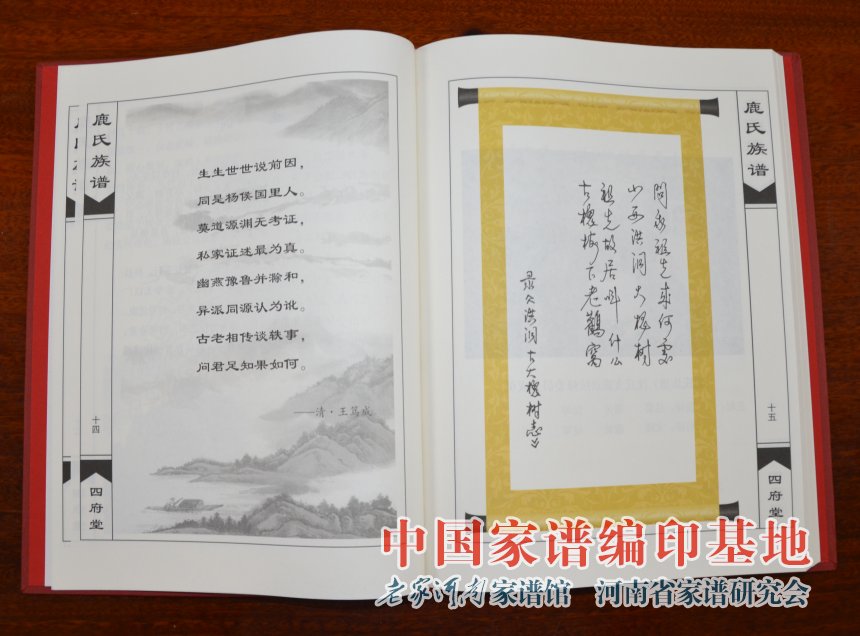 鹿氏族谱
生生世世说前因，
同是杨侯国里人。
莫道源渊无考证，
私家证述最为真。
幽燕豫鲁并滁和，
异派同源认为讹。
古老相传谈轶事，
问君足知果如何。
——清·王笃成
十四
四府堂
鹿氏族谱
问我祖先来何处
山西洪洞大槐树
祖先故居叫什么
古槐树下老鹳窝
录入洪洞古大槐树志
十五
四府堂
中国家谱编印基地
老家河南家谱馆 河南省家谱研究会